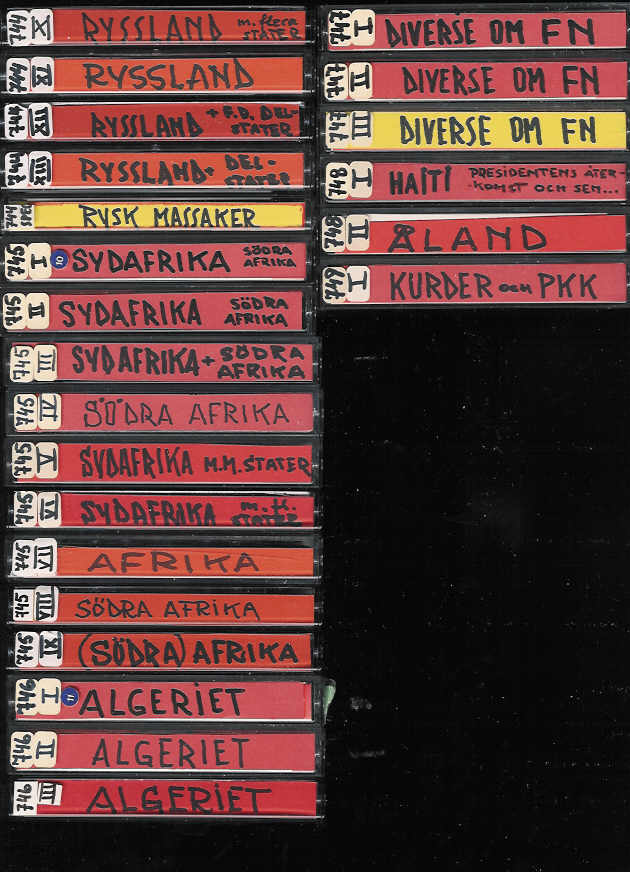 744 X RYSSLAND m. flera
STATER
744 XI RYSSLAND
744 XII RYSSLAND + F.D. DEL-
STATER
744 XIII RYSSLAND + DEL-
STATER
744 SPEC RYSK MASSAKER
745 I 10 SYDAFRIKA SÖDRA
AFRIKA
745 II SYDAFRIKA SÖDRA
AFRIKA
745 III SYDAFRIKA + SÖDRA
AFRIKA
745 IV SÖDRA AFRIKA
745 V SYDAFRIKA M.M. STATER
745 VI SYDAFRIKA m. fl.
STATER
745 VII AFRIKA
745 VIII SÖDRA AFRIKA
745 IX (SÖDRA) AFRIKA
746 I 11 ALGERIET
746 II ALGERIET
746 III ALGERIET
747 I DIVERSE OM FN
747 II DIVERSE OM FN
747 III DIVERSE OM FN
748 I HAITI PRESIDENTENS ÅTER-
-KOMST OCH SEN...
748 II ÅLAND
749 I KURDER och PKK